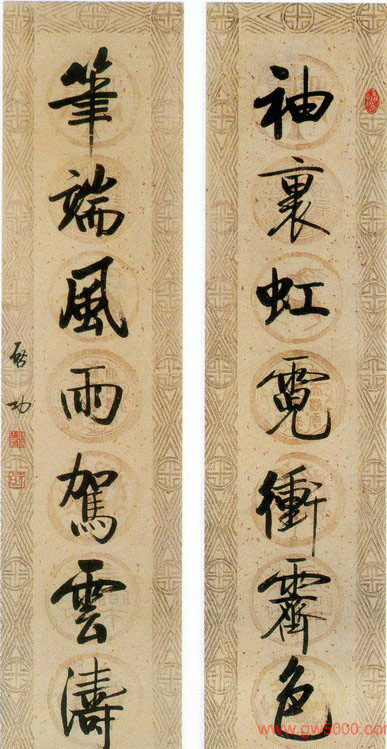 袖裏虹霓衝霽色
筆端風雨駕雲濤
啓功
www.gw5000.com